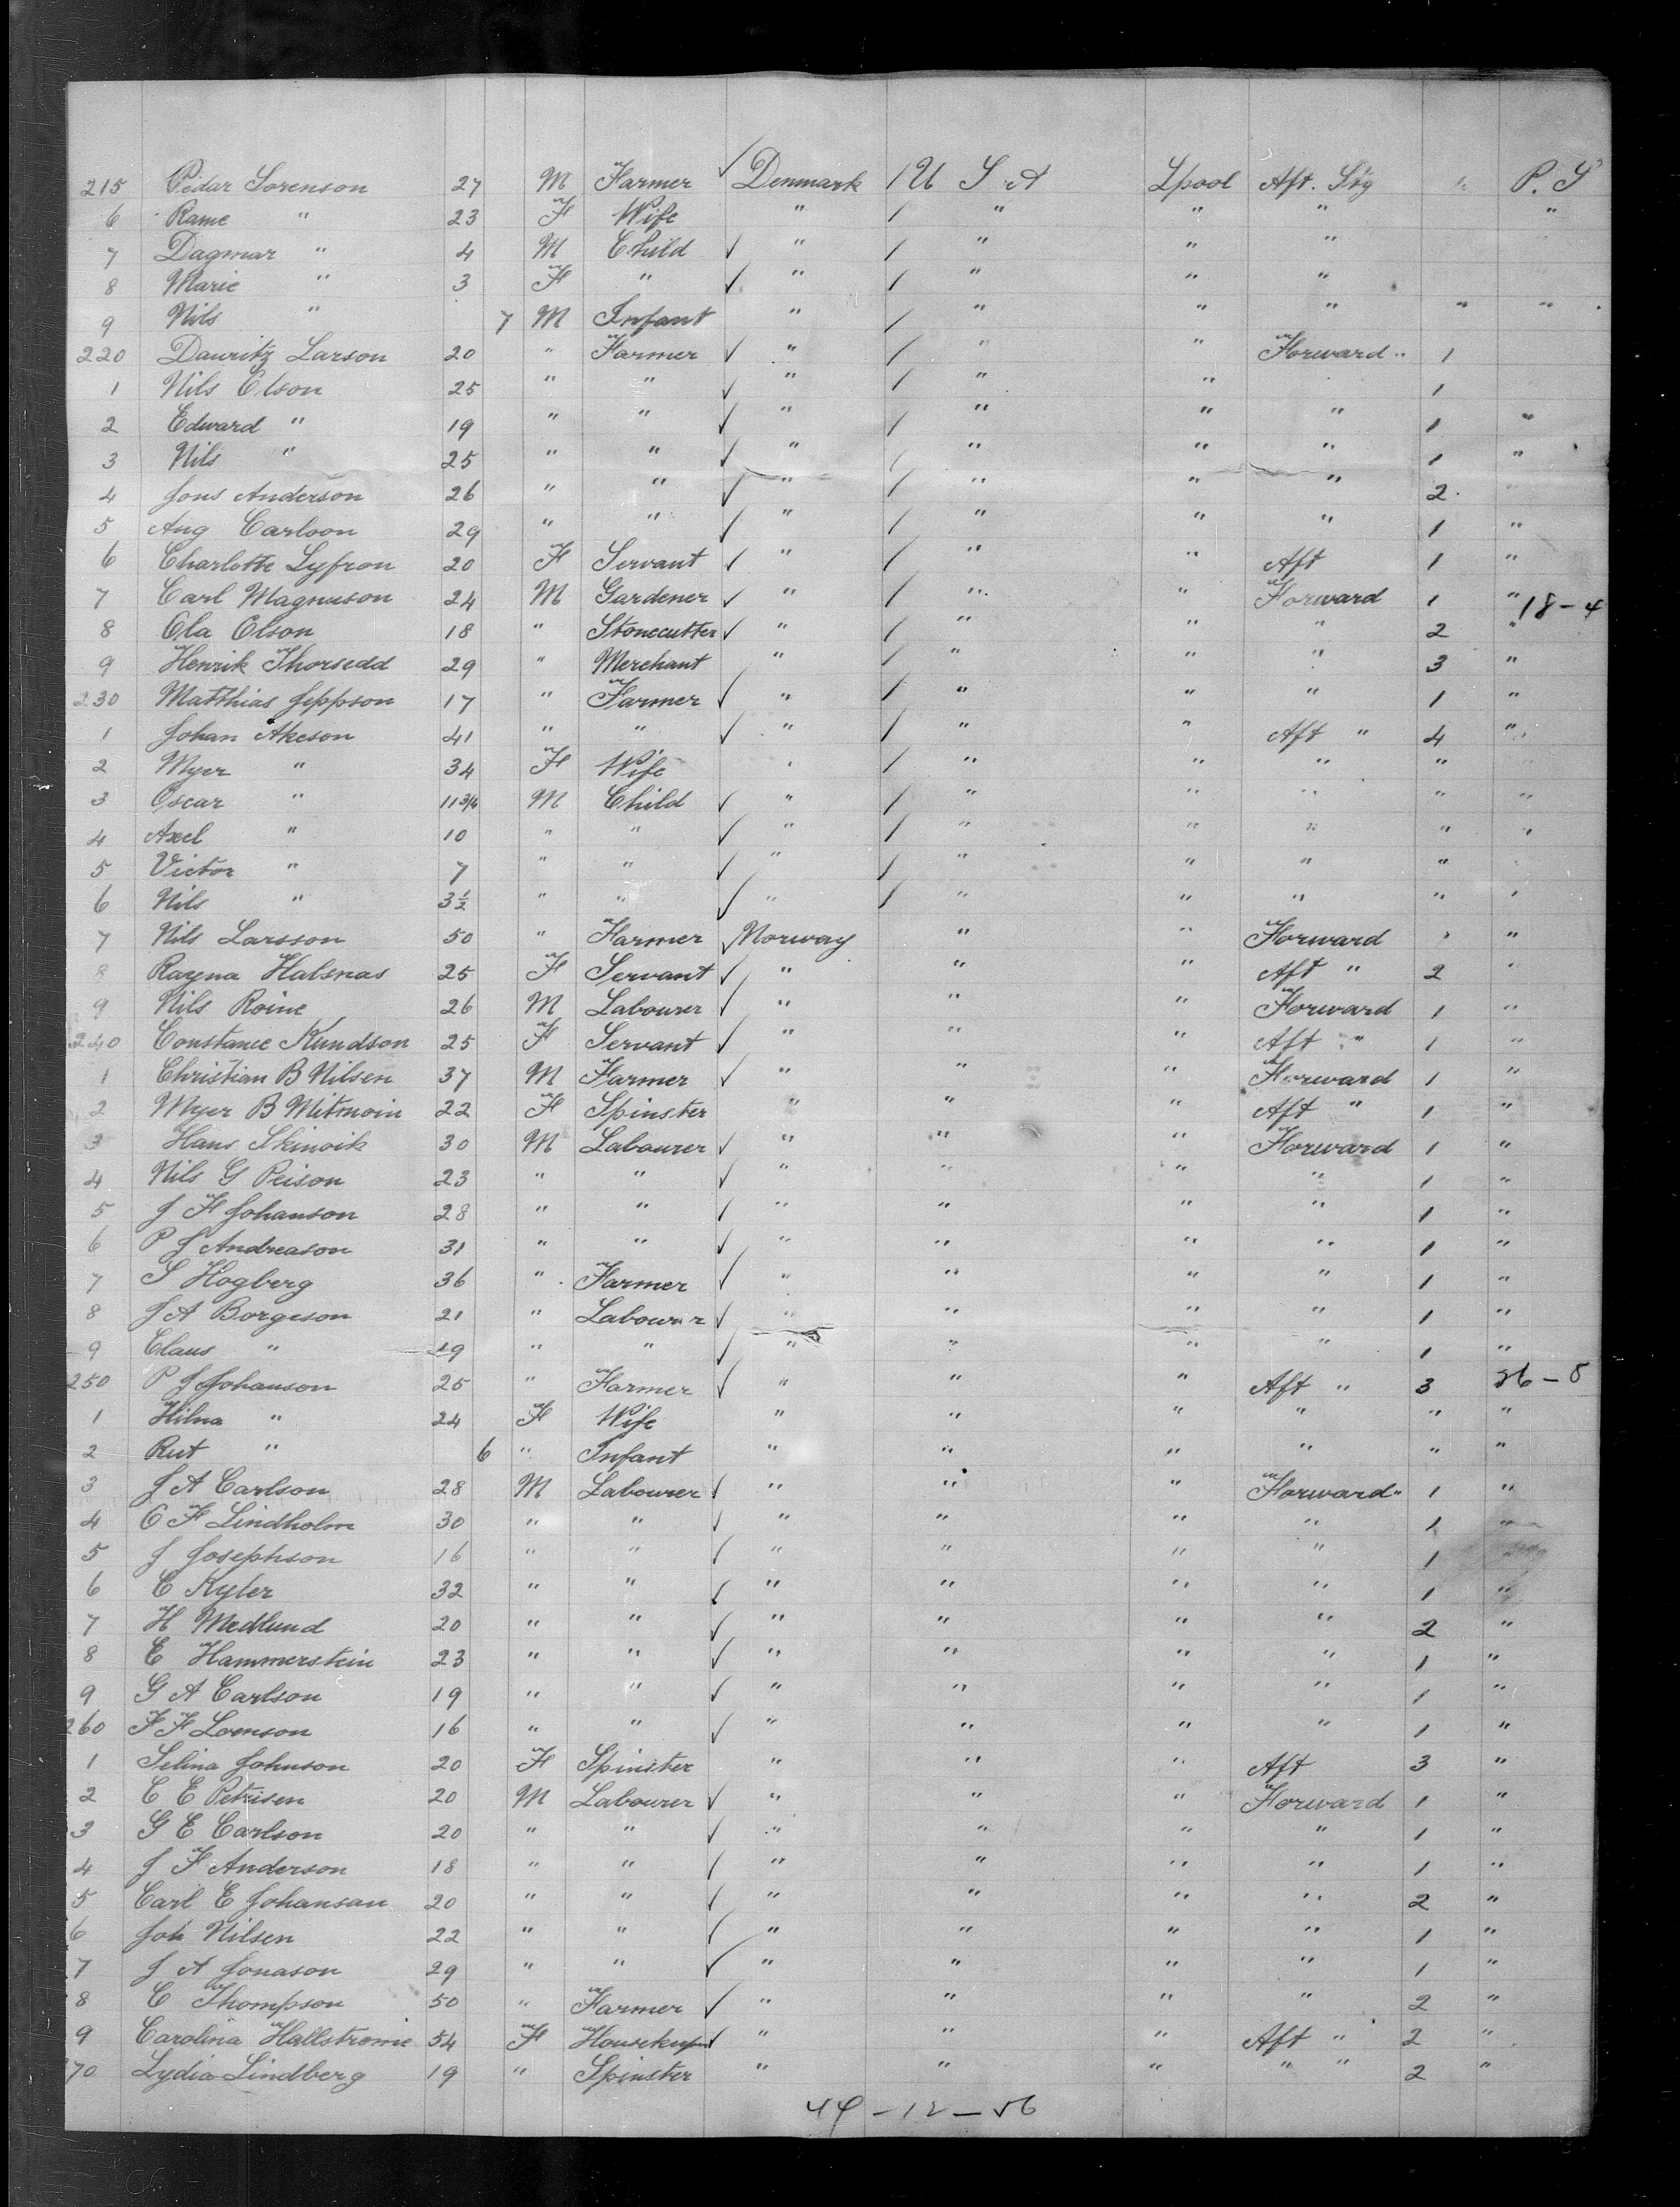 215 Pedar Sorenson 27 M Farmer ✓ Denmark / U S A Lpool Aft. Stg " P. S
6 Rame " 23 F Wife " / " " " "
7 Dagmar " 4 M Child ✓ " / " " "
8 Marie " 3 F " ✓ " / " " "
9 Nils " 7 M Infant " / " " " " "
220 Dauritz Larson 20 " Farmer ✓ " / " " Forward " 1
1 Nils Olson 25 " " ✓ " / " " 1
2 Edward " 19 " " ✓ " / " " " 1 "
3 Nils " 25 " " ✓ " / " " " 1 "
4 Jons Anderson 26 " " ✓ " / " " " 2 "
5 Aug Carlson 29 " " ✓ " / " " " 1 "
6 Charlotte Lyfron 20 F Servant ✓ " / " " Aft 1 "
7 Carl Magnuson 24 M Gardener ✓ " / " " Forward 1 " 18-4
8 Ola Olson 18 " Stonecutter ✓ " / " " " 2 "
9 Henrik Thorsedd 29 " Merchant " / " " " 3 "
230 Matthias Jeppson 17 " Farmer ✓ " / " " " 1 "
1 Johan Akeson 41 " " ✓ " / " " Aft " 4 "
2 Myer " 34 F Wife " / " " " " "
3 Oscar " 11 3/4 M Child ✓ " / " " " " "
4 Axel " 10 " " ✓ " / " " " " "
5 Victor " 7 " " ✓ " / " " " "
6 Nils " 3½ " " ✓ " / " " " " "
7 Nils Larsson 50 " Farmer ✓ Norway " " Forward " "
8 Ragna Halsnas 25 F Servant ✓ " " " Aft " 2 "
9 Nils Roine 26 M Labourer ✓ " " " Forward 1 "
240 Constance Kundson 25 F Servant ✓ " " " Aft " 1 "
1 Christian B Nilsen 37 M Farmer ✓ " " " Forward 1 "
2 Myer B Mitmoin 22 F Spinster " " " Aft " 1 "
3 Hans Skinvik 30 M Labourer ✓ " " " Forward 1 "
4 Nils G Peison 23 " " ✓ " " " " 1 "
5 J F Johanson 28 " " ✓ " " " " 1 "
6 P J Andreason 31 " " ✓ " " " " 1 "
7 S Hogberg 36 " Farmer ✓ " " " " 1 "
8 J A Borgeson 21 " Labourer ✓ " " " " 1 "
9 Claus " 19 " " ✓ " " " " 1 "
250 P J Johanson 25 " Farmer ✓ " " " Aft " 3 26-8
1 Hilna " 24 F Wife " " " " " "
2 Rut " 6 " Infant " " " " " "
3 J A Carlson 28 M Labourer ✓ " " " Forward " 1 "
4 C F Lindholm 30 " " ✓ " " " " 1 "
5 J Josephson 16 " " ✓ " " " " 1 "
6 C Kyler 32 " " ✓ " " " " 1 "
7 H Medlund 20 " " ✓ " " " " 2 "
8 E Hammerstein 23 " " ✓ " " " " 1 "
9 G A Carlson 19 " " ✓ " " " " 1 "
260 F F Loenson 16 " " ✓ " " " " 1 "
1 Selina Johnson 20 F Spinster " " " Aft 3 "
2 C E Petrisen 20 M Labourer ✓ " " " Forward 1 "
3 G E Carlson 20 " " ✓ " " " " 1 "
4 J F Anderson 18 " " ✓ " " " " 1 "
5 Carl E Johansan 20 " " ✓ " " " " 2 "
6 Joh Nilsen 22 " " ✓ " " " " 1 "
7 J A Jonason 29 " " ✓ " " " " 1 "
8 C Thompson 50 " Farmer ✓ " " " " 2 "
9 Carolina Hallstromie 54 F Housekeeper ✓ " " " Aft " 2 "
70 Lydia Lindberg 19 " Spinster " " " " " 2 "
44-12-56